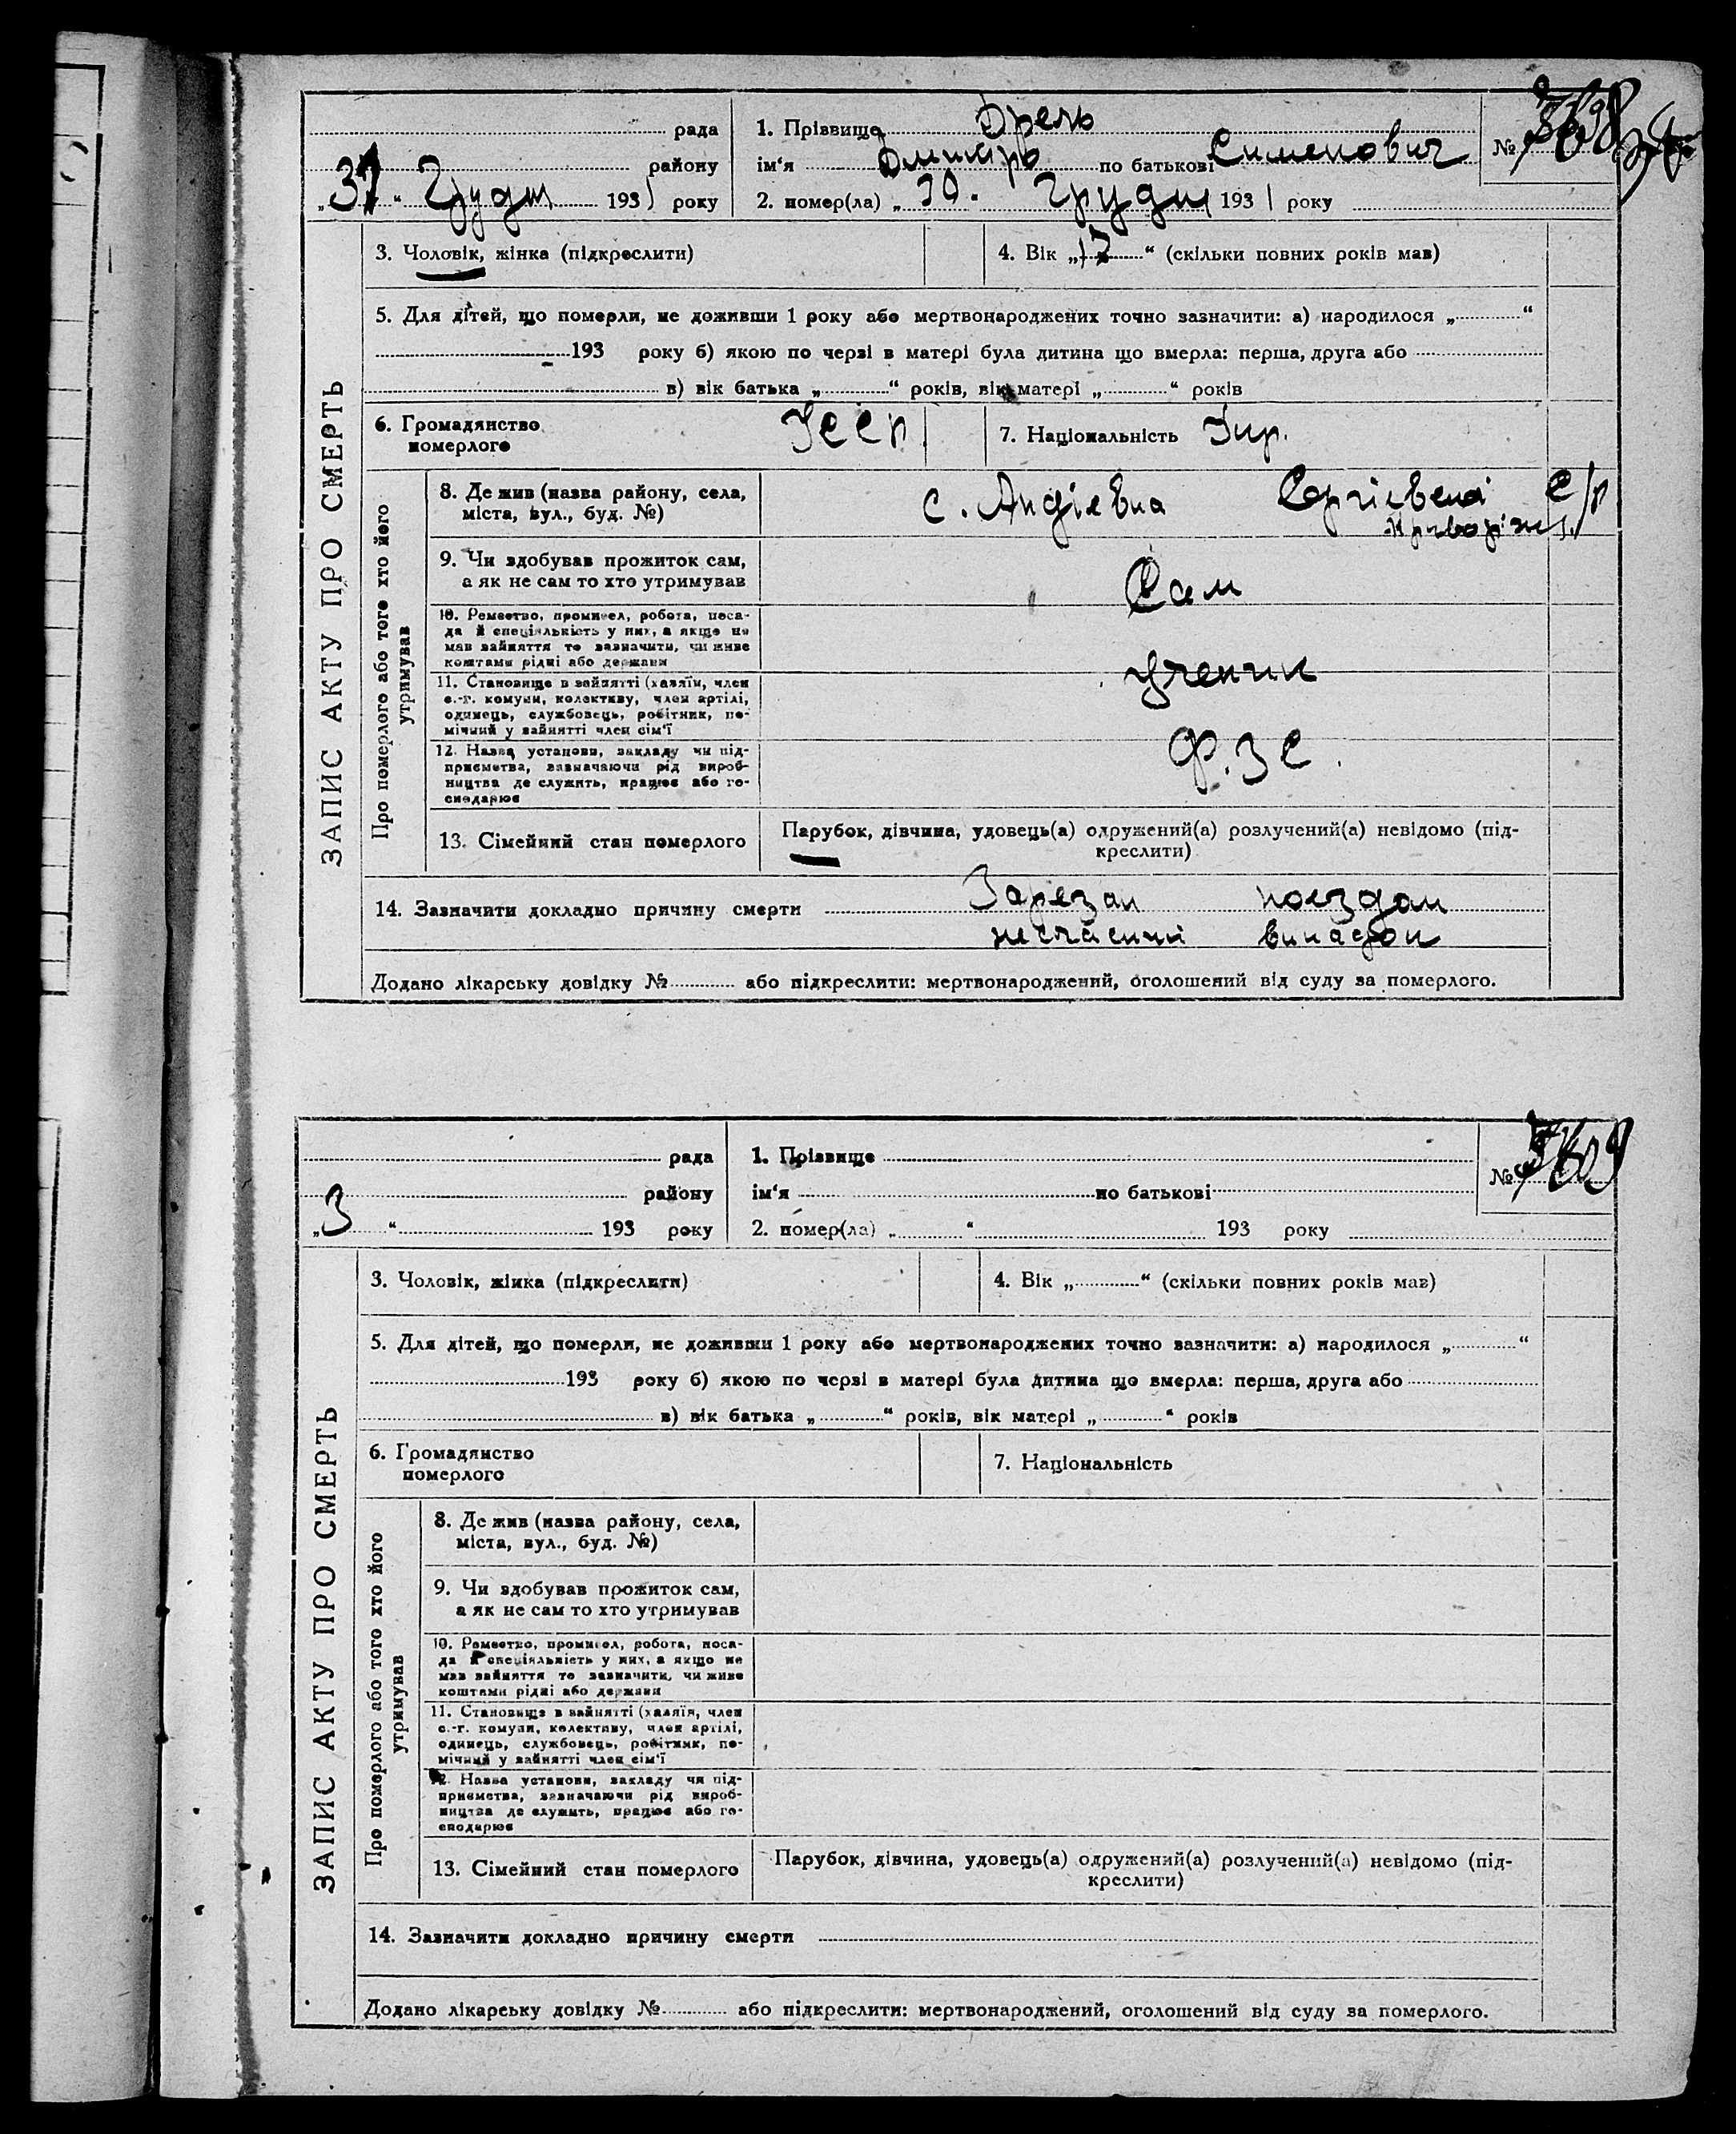 рада
району
„31“ Грудн 1931 року
1. Прізвище Орель
ім‘я Дмитро по батькові Сименович
2. помер(ла) „30. Грудн 1931 року
№
ЗАПИС АКТУ ПРО СМЕРТЬ
3. Чоловік, жінка (підкреслити)
4. Вік „17“ (скільки повних років мав)
5. Для дітей, що померли, не доживши 1 року або мертвонароджених точно зазначити: а) народилося „ “
193 року б) якою по черзі в матері була дитина що вмерла: перша, друга або
в) вік батька „ “ років, вік матері „ “ років
6. Громадянство
померлого
УССР
7. Національність Укр.
Про померлого або того хто його
утримував
8. Де жив (назва району, села,
міста, вул., буд. №)
с. С/р
9. Чи здобував прожиток сам,
а як не сам то хто утримував
Сам
10. Ремество, промисел, робота, поса-
да й спеціяльність у них, а якщо не
мав зайняття то зазначити, чи живе
коштами рідні або держави
ученик
11. Становище в зайнятті (хазяїн, член
с.-г. комуни, колективу, член артілі,
одинець, службовець, робітник, по-
мічний у зайнятті член сім‘ї
12. Назва установи, закладу чи під-
приємства, зазначаючи рід вироб-
ництва де служить, працює або го-
сподарює
Ф.З.С.
13. Сімейний стан померлого
Парубок, дівчина, удовець(а) одружений(а) розлучений(а) невідомо (під-
креслити)
14. Зазначити докладно причину смерти Зарезан поездом
випадок
Додано лікарську довідку № або підкреслити: мертвонароджений, оголошений від суду за померлого.
рада
району
„3 “ 193 року
1. Прізвище
ім‘я по батькові
2. помер(ла) „ “ 193 року
№
ЗАПИС АКТУ ПРО СМЕРТЬ
3. Чоловік, жінка (підкреслити)
4. Вік „ “ (скільки повних років мав)
5. Для дітей, що померли, не доживши 1 року або мертвонароджених точно зазначити: а) народилося „ “
193 року б) якою по черзі в матері була дитина що вмерла: перша, друга або
в) вік батька „ “ років, вік матері „ “ років
6. Громадянство
померлого
7. Національність
Про померлого або того хто його
утримував
8. Де жив (назва району, села,
міста, вул., буд. №)
9. Чи здобував прожиток сам,
а як не сам то хто утримував
10. Ремество, промисел, робота, поса-
да й спеціяльність у них, а якщо не
мав зайняття то зазначити, чи живе
коштами рідні або держави
11. Становище в зайнятті (хазяїн, член
с.-г. комуни, колективу, член артілі,
одинець, службовець, робітник, по-
мічний у зайнятті член сім‘ї
12. Назва установи, закладу чи під-
приємства, зазначаючи рід вироб-
ництва де служить, працює або го-
сподарює
13. Сімейний стан померлого
Парубок, дівчина, удовець(а) одружений(а) розлучений(а) невідомо (під-
креслити)
14. Зазначити докладно причину смерти
Додано лікарську довідку № або підкреслити: мертвонароджений, оголошений від суду за померлого.